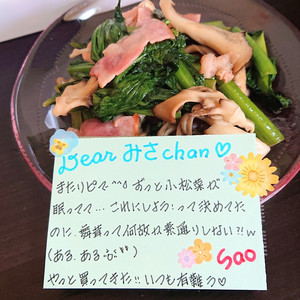 Dear みさchan♡
またリピで^^♪ ずっと小松菜が
眠ってて… これにしよう！って決めてた
のに、舞茸って何故か素通りしない?!w
(あるあるぷ
Sao
やっと買ってきた!! いつも有難う♡